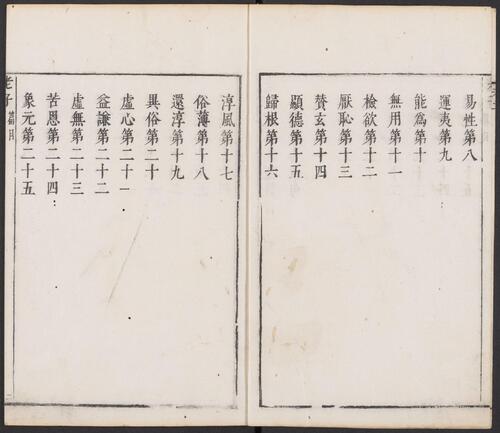 易性第八
運夷第九
能爲第十
無用第十一
檢欲第十二
厭恥第十三
赞玄第十四
顯德第十五
歸根第十六
淳風第十七
俗薄第十八
還淳第十九
異俗第二十
虛心第二十一
益謙第二十二
虛無第二十三
苦恩第二十四
象元第二十五
老子 篇目